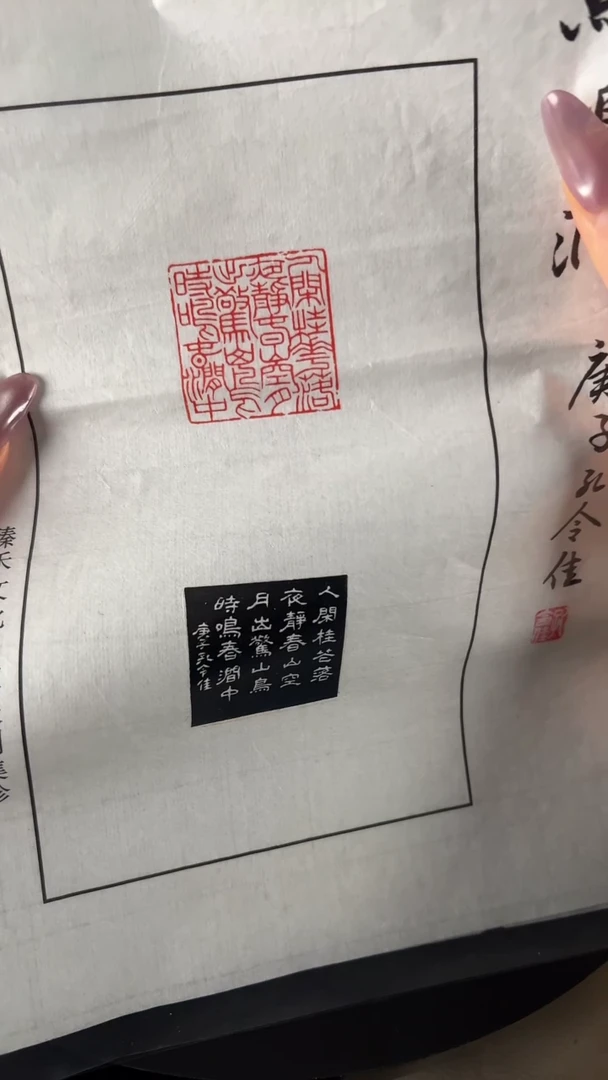 庚子孔令佳
人閑桂華落
夜靜春山空月
出驚山鳥
時鳴春澗中
人閑桂花落
夜靜春山空
月出驚山鳥
時鳴春澗中
庚子孔令佳